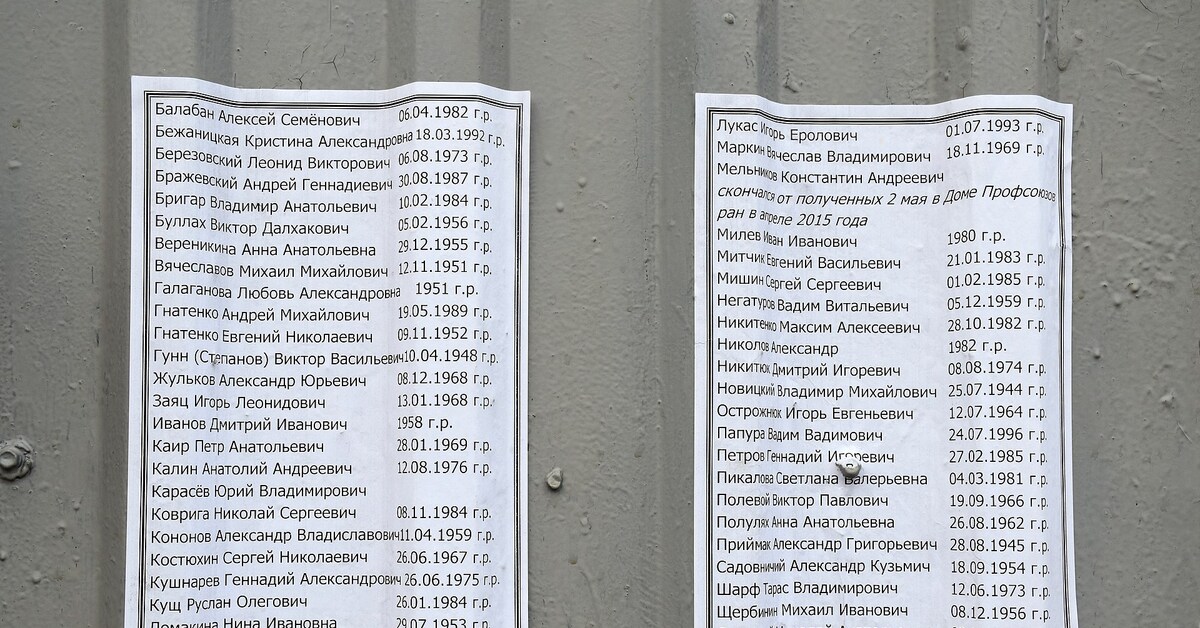 Балабан Алексей Семёнович 06.04.1982 г.р.
Бежаницкая Кристина Александровна 18.03.1992 г.р.
Березовский Леонид Викторович 06.08.1973 г.р.
Бражевский Андрей Геннадиевич 30.08.1987 г.р.
Бригар Владимир Анатольевич 10.02.1984 г.р.
Буллах Виктор Далхакович 05.02.1956 г.р.
Вереникина Анна Анатольевна 29.12.1955 г.р.
Вячеславов Михаил Михайлович 12.11.1951 г.р.
Галаганова Любовь Александровна 1951 г.р.
Гнатенко Андрей Михайлович 19.05.1989 г.р.
Гнатенко Евгений Николаевич 09.11.1952 г.р.
Гунн (Степанов) Виктор Васильевич 10.04.1948 г.р.
Жульков Александр Юрьевич 08.12.1968 г.р.
Заяц Игорь Леонидович 13.01.1968 г.р.
Иванов Дмитрий Иванович 1958 г.р.
Каир Петр Анатольевич 28.01.1969 г.р.
Калин Анатолий Андреевич 12.08.1976 г.р.
Карасёв Юрий Владимирович
Коврига Николай Сергеевич 08.11.1984 г.р.
Кононов Александр Владиславович 11.04.1959 г.р.
Костюхин Сергей Николаевич 26.06.1967 г.р.
Кушнарев Геннадий Александрович 26.06.1975 г.р.
Кущ Руслан Олегович 26.01.1984 г.р.
Ломакина Нина Ивановна 29.07.1953 г.р.
Лукас Игорь Еролович 01.07.1993 г.р.
Маркин Вячеслав Владимирович 18.11.1969 г.р.
Мельников Константин Андреевич
скончался от полученных 2 мая в Доме Профсоюзов
ран в апреле 2015 года
Милев Иван Иванович 1980 г.р.
Митчик Евгений Васильевич 21.01.1983 г.р.
Мишин Сергей Сергеевич 01.02.1985 г.р.
Негатуров Вадим Витальевич 05.12.1959 г.р.
Никитенко Максим Алексеевич 28.10.1982 г.р.
Николов Александр 1982 г.р.
Никитюк Дмитрий Игоревич 08.08.1974 г.р.
Новицкий Владимир Михайлович 25.07.1944 г.р.
Острожнюк Игорь Евгеньевич 12.07.1964 г.р.
Папура Вадим Вадимович 24.07.1996 г.р.
Петров Геннадий Игоревич 27.02.1985 г.р.
Пикалова Светлана Валерьевна 04.03.1981 г.р.
Полевой Виктор Павлович 19.09.1966 г.р.
Полулях Анна Анатольевна 26.08.1962 г.р.
Приймак Александр Григорьевич 28.08.1945 г.р.
Садовничий Александр Кузьмич 18.09.1954 г.р.
Шарф Тарас Владимирович 12.06.1973 г.р.
Щербинин Михаил Иванович 08.12.1956 г.р.